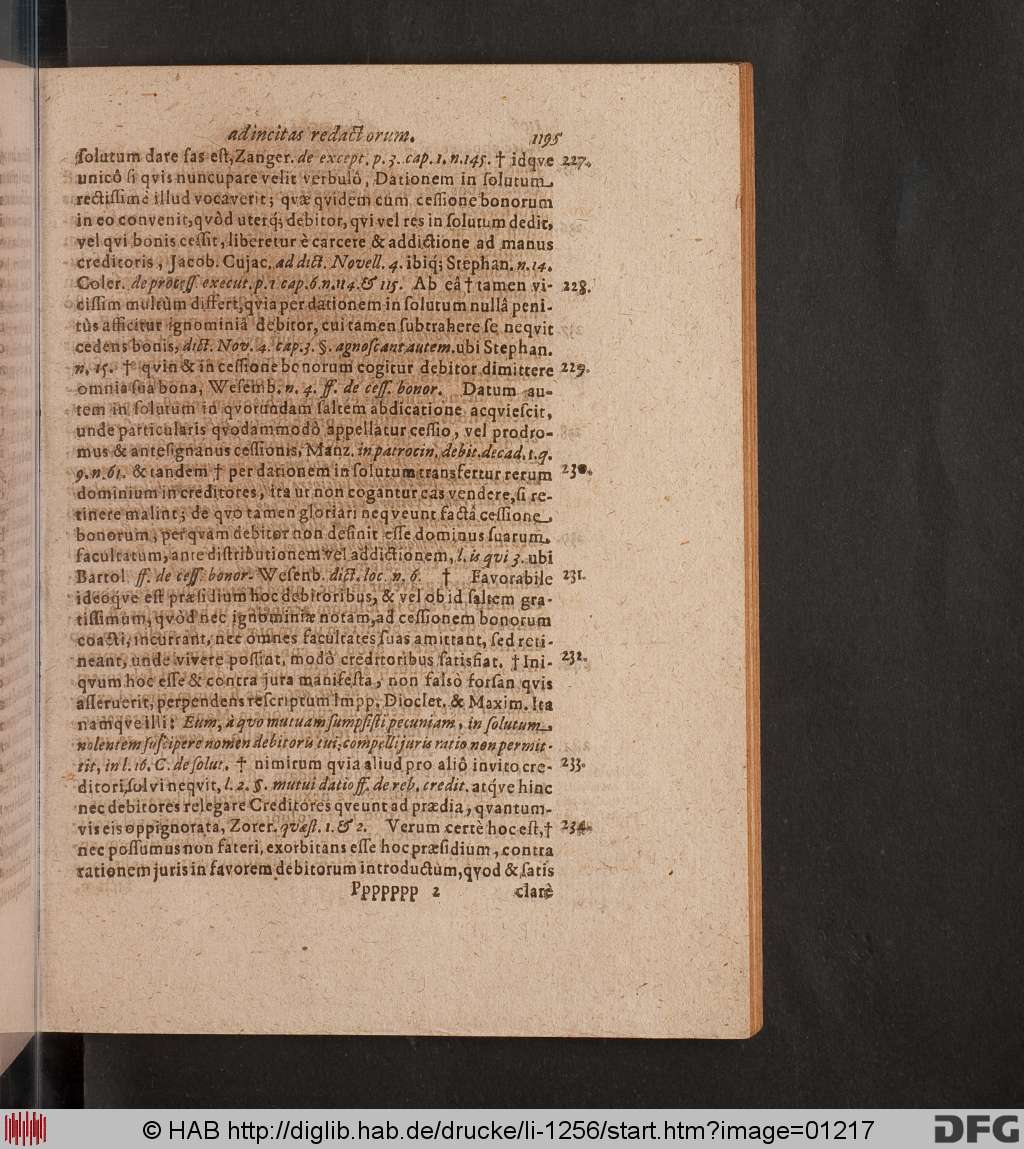 ad incitas redactorum. 1195
ſolutum dare fas eſt, Zanger. de except. p. 3. cap. 1. n. 145. † idqve 227.
unicô ſi qvis nuncupare velit verbulô, Dationem in ſolutum
rectiſſimè illud vocaverit; qvæ qvidem cum ceſſione bonorum
in eo convenit, qvôd uterq; debitor, qvi vel res in ſolutum dedit,
vel qvi bonis ceſſit, liberetur è carcere & addictione ad manus
creditoris, Jacob. Cujac. ad dict. Novell. 4. ibiq; Stephan. n. 14.
Coler. de proceſſ. execut. p. 1 cap. 6. n. 114. & 115. Ab eâ † tamen vi- 228.
ciſſim multùm differt, qvia per dationem in ſolutum nullâ peni-
tùs afficitur ignominiâ debitor, cui tamen ſubtrahere ſe neqvit
cedens bonis, dict. Nov. 4. cap. 3. §. agnoſcant autem. ubi Stephan.
n. 15. † qvin & in ceſſione bonorum cogitur debitor dimittere 229.
omnia ſua bona, Weſemb. n. 4. ff. de ceſſ. bonor. Datum au-
tem in ſolutum in qvorundam ſaltem abdicatione acqvieſcit,
unde particularis qvodammodô appellatur ceſſio, vel prodro-
mus & anteſignanus ceſſionis, Manz. in patrocin. debit. decad. 1. q.
9. n. 61. & tandem † per dationem in ſolutum transfertur rerum 230.
dominium in creditores, ita ut non cogantur eas vendere, ſi re-
tinere malint; de qvo tamen gloriari neqveunt factâ ceſſione
bonorum, per qvam debitor non deſinit eſſe dominus ſuarum
facultatum, ante diſtributionem vel addictionem, l. is qui 3. ubi
Bartol. ff. de ceſſ. bonor. Weſenb. dict. loc. n. 6. † Favorabile 231.
ideoqve eſt præſidium hoc debitoribus, & vel ob id ſaltem gra-
tiſſimum, qvòd nec ignominiæ notam, ad ceſſionem bonorum
coacti, incurrant, nec omnes facultates ſuas amittant, ſed reti-
neant, unde vivere poſſint, modô creditoribus ſatisfiat. † Ini- 232.
qvum hoc eſſe & contra jura manifeſta, non falsò forſan qvis
aſſeruerit, perpendens reſcriptum Impp. Dioclet. & Maxim. Ita
namqve illi: Eum, à qvo mutuam ſumpſiſti pecuniam, in ſolutum
nolentem ſuſcipere nomen debitoris tui, compelli juris ratio non permit-
tit, in l. 16. C. de ſolut. † nimirum qvia aliud pro aliô invito cre- 233.
ditori, ſolvi neqvit, l. 2. §. mutui datio ff. de reb. credit. atqve hinc
nec debitores relegare Creditores qveunt ad prædia, qvantum-
vis eis oppignorata, Zorer. quæſt. 1. & 2. Verum certè hoc eſt, † 234.
nec poſſumus non fateri, exorbitans eſſe hoc præſidium, contra
rationem juris in favorem debitorum introductum, qvod & ſatis
Ppppppp 2 clarè
© HAB http://diglib.hab.de/drucke/li-1256/start.htm?image=01217
DFG